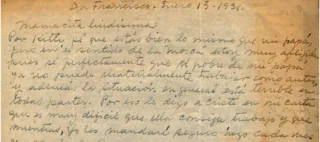 Sn. Francisco. Enero 13-1931.
Mamacita lindísima
Por Kitti sé que estás bien lo mismo que mi papá,
pero en el sentido de la mosca están muy
pues sé perfectamente que el pobre de mi papá
ya no puede materialmente trabajar como antes,
y además la situación en general está terrible en
todas partes. Por eso le digo a Cristi en su carta
que es muy difícil que ella consiga trabajo y que
mientras, yo les mandaré seguro algo cada mes